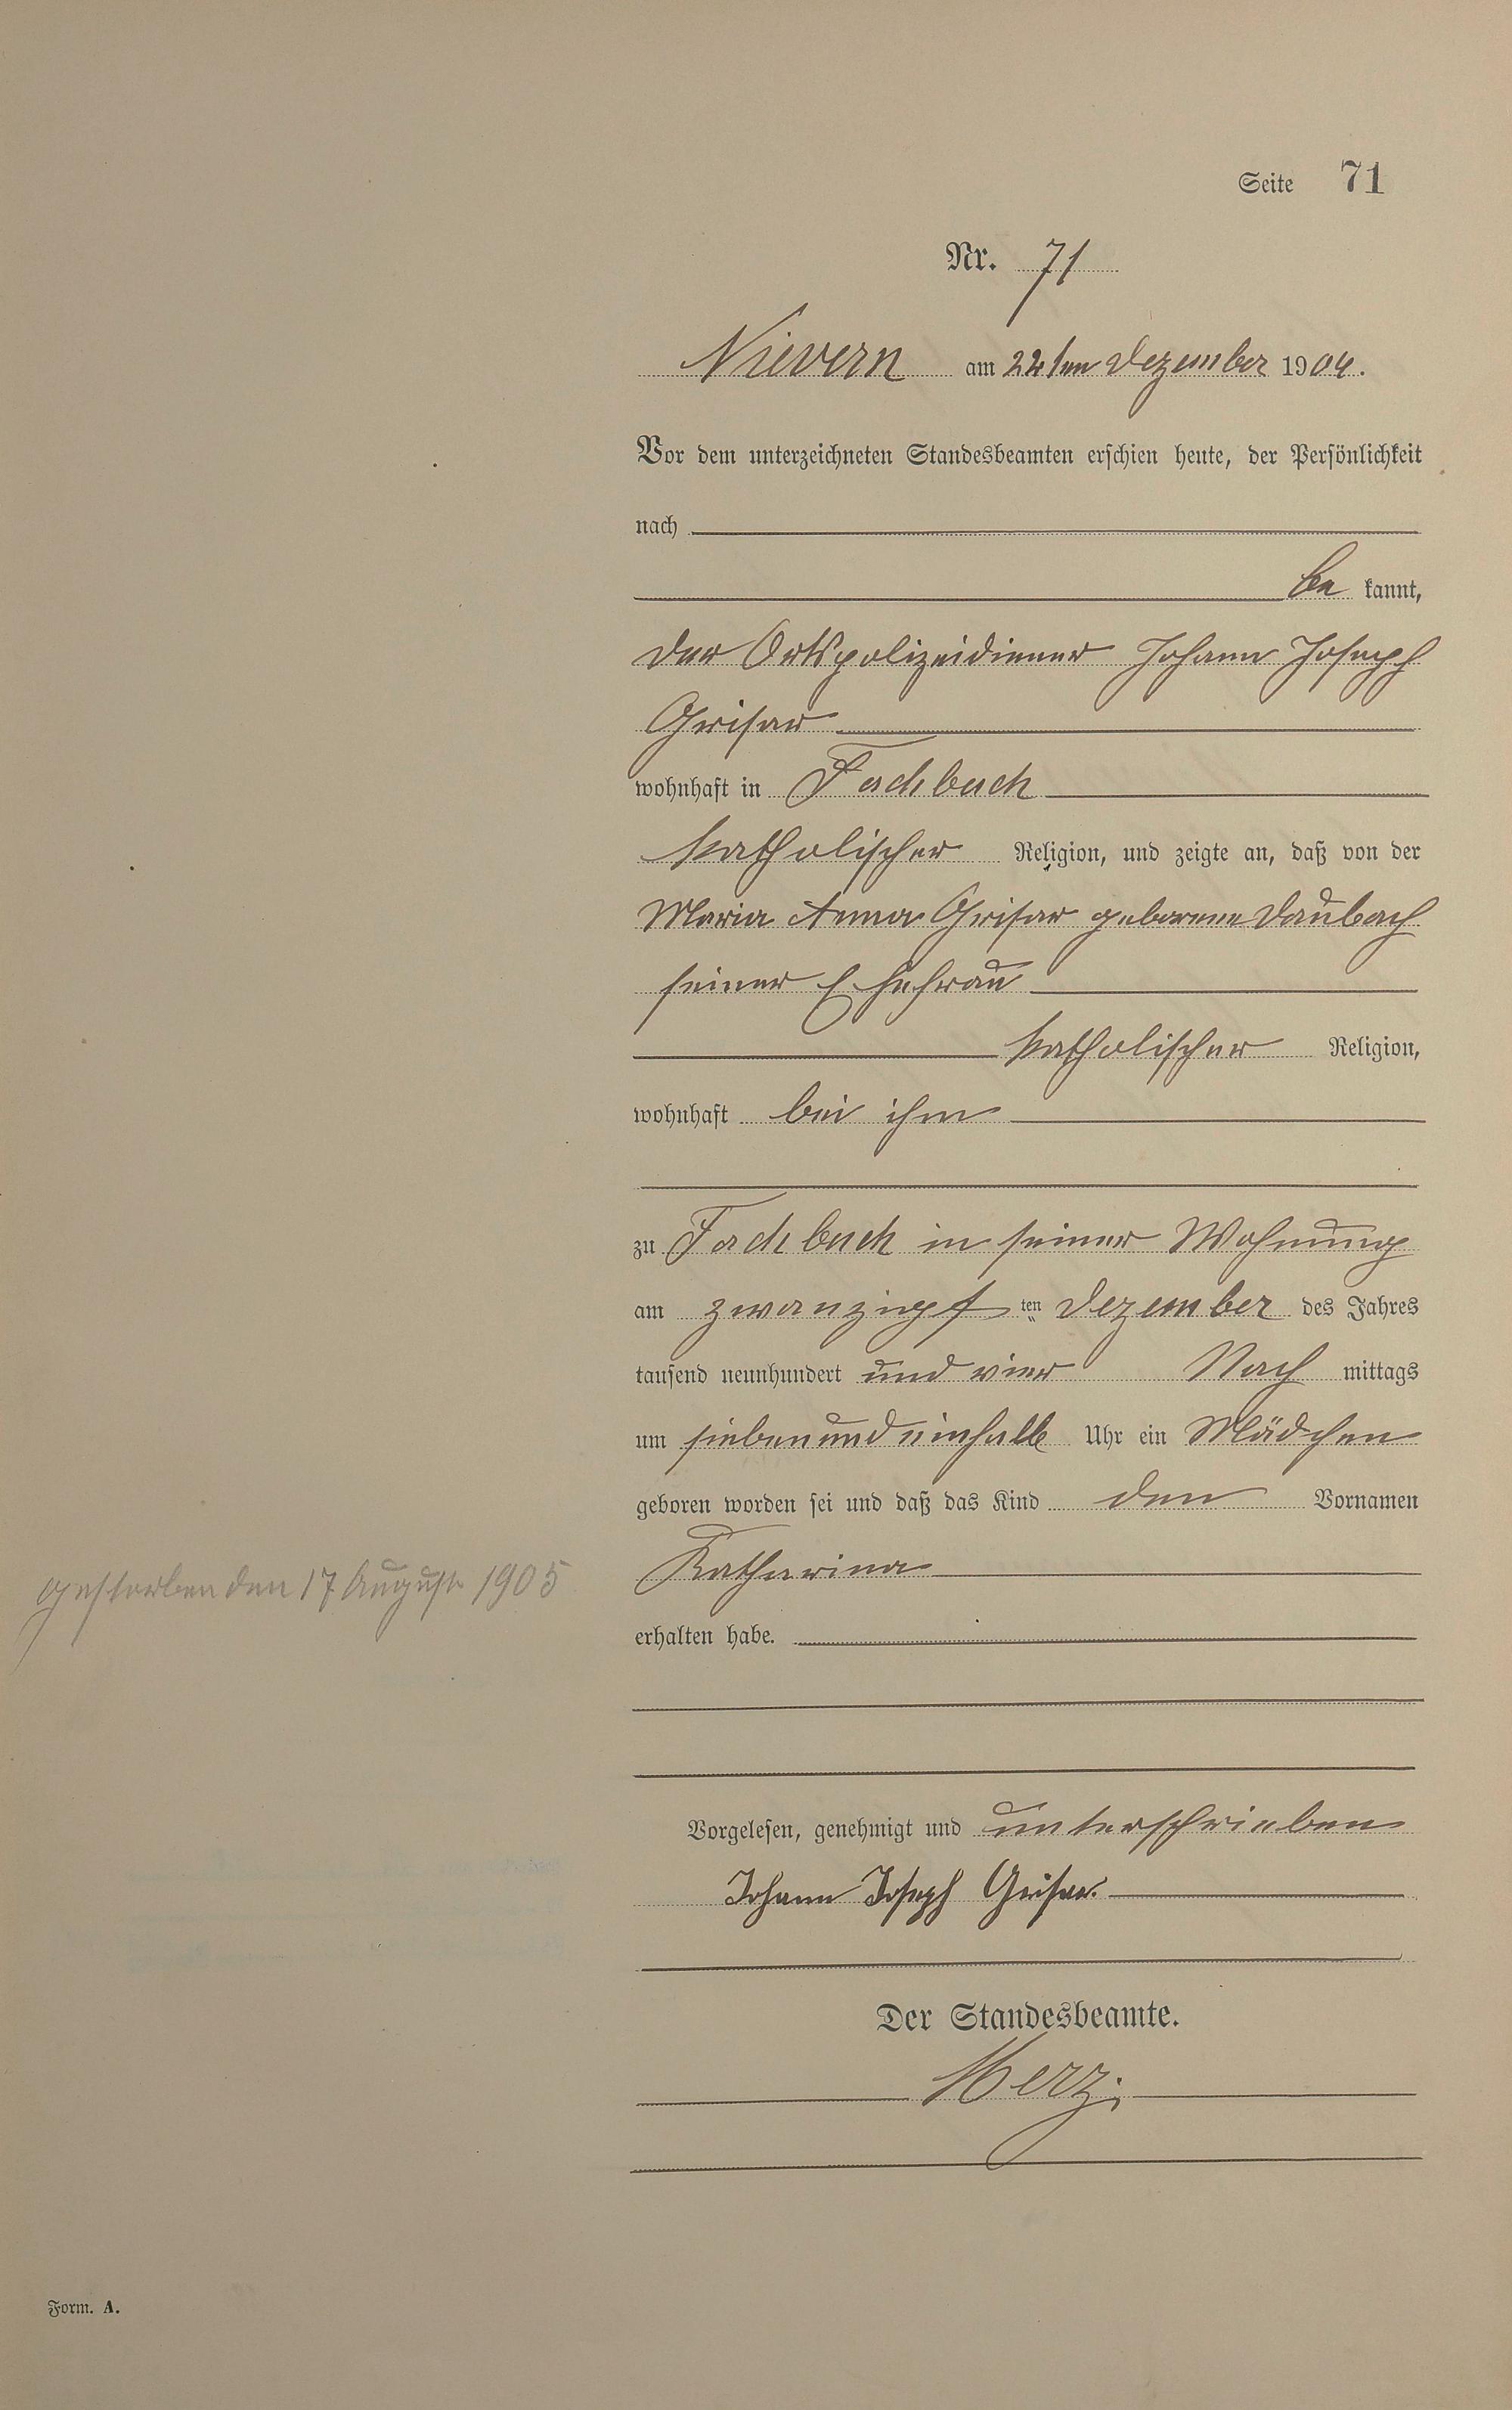 Seite 71
Nr. 71
Nievern am 22ten Dezember 1904.
Vor dem unterzeichneten Standesbeamten erschien heute, der Persönlichkeit
nach
be kannt,
der Ortspolizeidiener Johann Joseph
Grisar
wohnhaft in Fachbach
katholischer Religion, und zeigte an, daß von der
Maria Anna Grisar geborene Daubach
seiner Ehefrau
katholischer Religion,
wohnhaft bei ihm
zu Fachbach in seiner Wohnung
am zwanzigsten Dezember des Jahres
tausend neunhundert und vier Nach mittags
um siebenundeinhalb Uhr ein Mädchen
geboren worden sei und daß das Kind den Vornamen
Katharina
gestorben den 17 August 1905
erhalten habe.
Vorgelesen, genehmigt und unterschrieben
Johann Joseph Grisar.
Der Standesbeamte.
Merz.
Form. A.